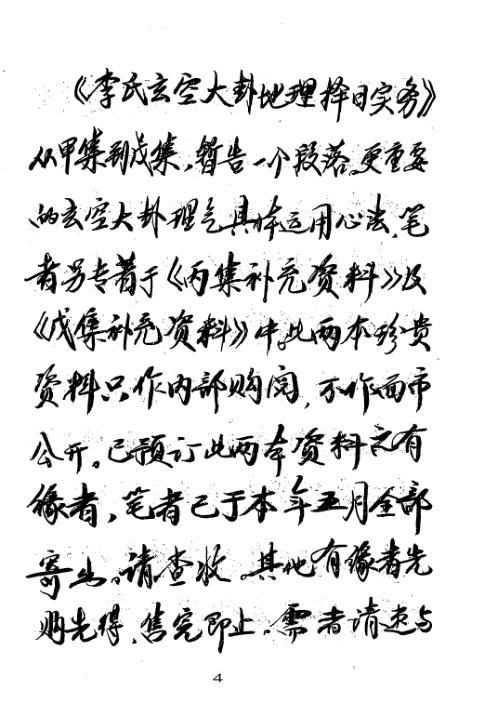 《李氏玄空大卦地理择日实务》
从甲集到戊集，暂告一个段落。更重要
的玄空大卦理气具体运用心法，笔
者另专著于《丙集补充资料》及
《戊集补充资料》中。此两本珍贵
资料只作内部购阅，不作面市
公开。已预订此两本资料之有
缘者，笔者已于本年五月全部
寄出。请查收。其他有缘者先
购先得，售完即止。需者请速与
4